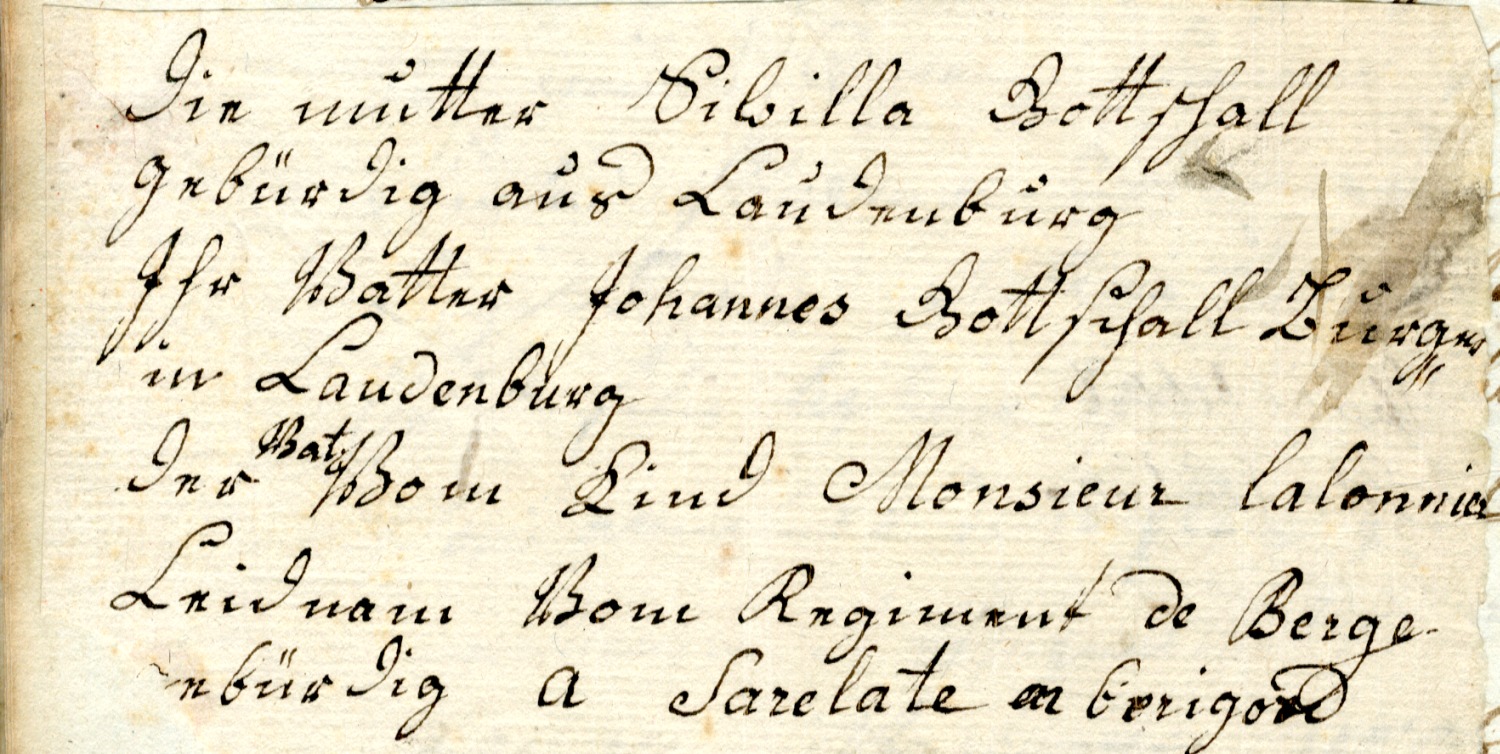 Die mutter Sibilla Gottschall
gebürdig aus Laudenburg
Ihr Vatter Johannes Gottschall Burger
in Laudenburg
Vat
der Vom Kind Monsieur lalonnier
Leidnam Vom Regiment de Berge
ebürdig a Sarelate en berigord